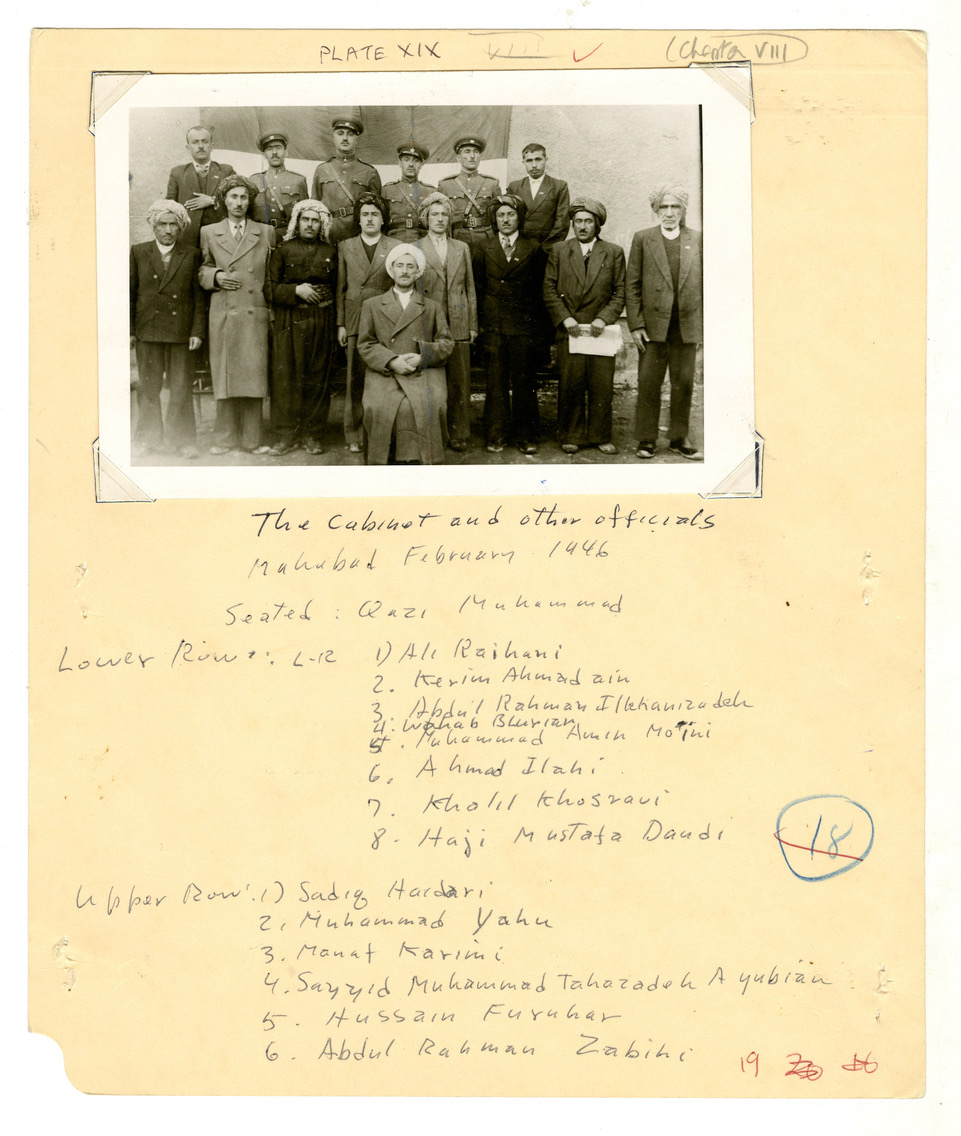 PLATE XIX VIII (Chapter VIII)
The Cabinet and other officials
Mahabad February 1946
Seated : Qazi Muhammad
Lower Row : L-R 1) Ali Raihani
2. Kerim Ahmadain
3. Abdul Rahman Ilkhanizadeh
4. Wahab Blurian
5. Muhammad Amin Mo'ini
6. Ahmad Ilahi
7. Khalil Khosravi
8. Haji Mustafa Daudi
18
Upper Row : 1) Sadiq Haidari
2. Muhammad Yahu
3. Manaf Karimi
4. Sayyid Muhammad Tahazadeh Ayubian
5. Hussain Furuhar
6. Abdul Rahman Zabihi
19